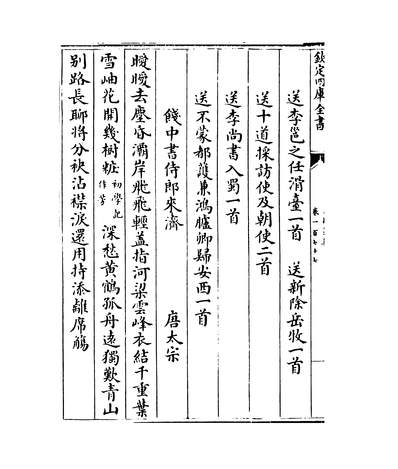 欽定四庫全書
卷一百七十七
送李邕之任滑臺一首　送新除岳牧一首
送十道採訪使及朝使二首
送李尚書入蜀一首
送不蒙都護兼鴻臚卿歸安西一首
餞中書侍郎來濟　唐太宗
曖曖去塵昏灞岸飛飛輕蓋指河梁雲峰衣結千重葉
雪岫花開幾樹粧初學記作芳深愁黄鶴孤舟遠獨歎青山
别路長聊將分袂沾襟淚還用持添離席觴